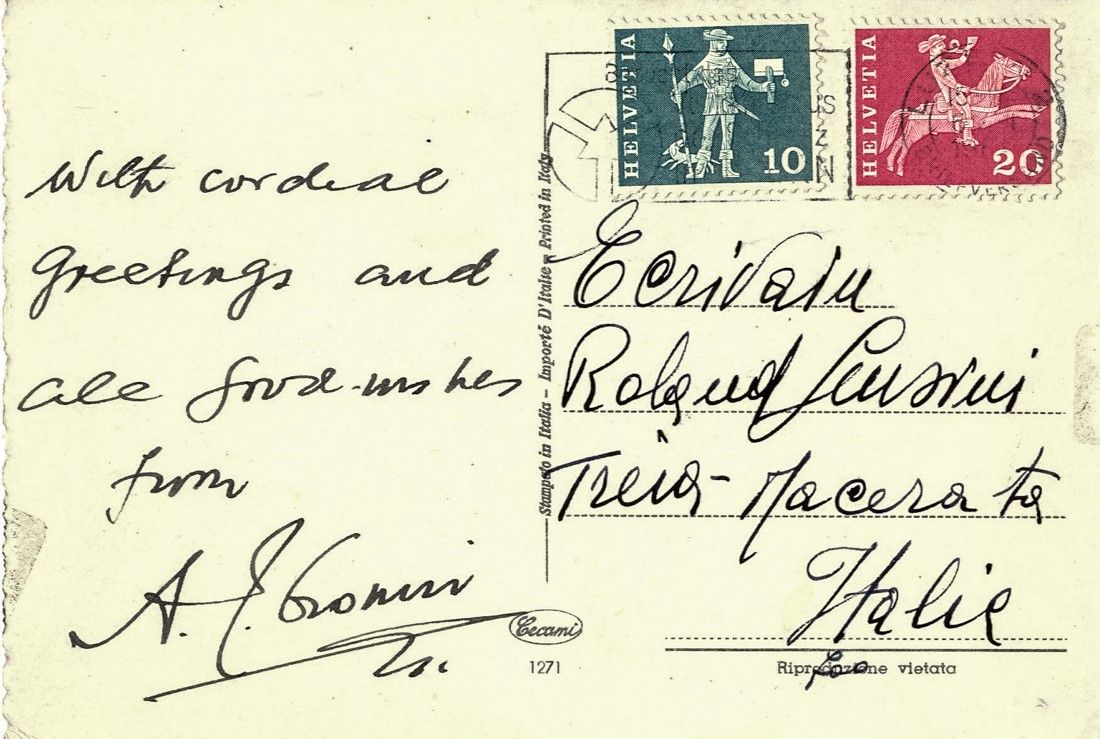 With cordial
Greetings and
all good-wishes
from
A. J. Cronin
HELVETIA
10
HELVETIA
20
Ecrivain
Roland
Treia - Macerata
Italie
Stampato in Italia – Importé D'Italie – Printed in Italy
Cecami
1271
Riproduzione vietata